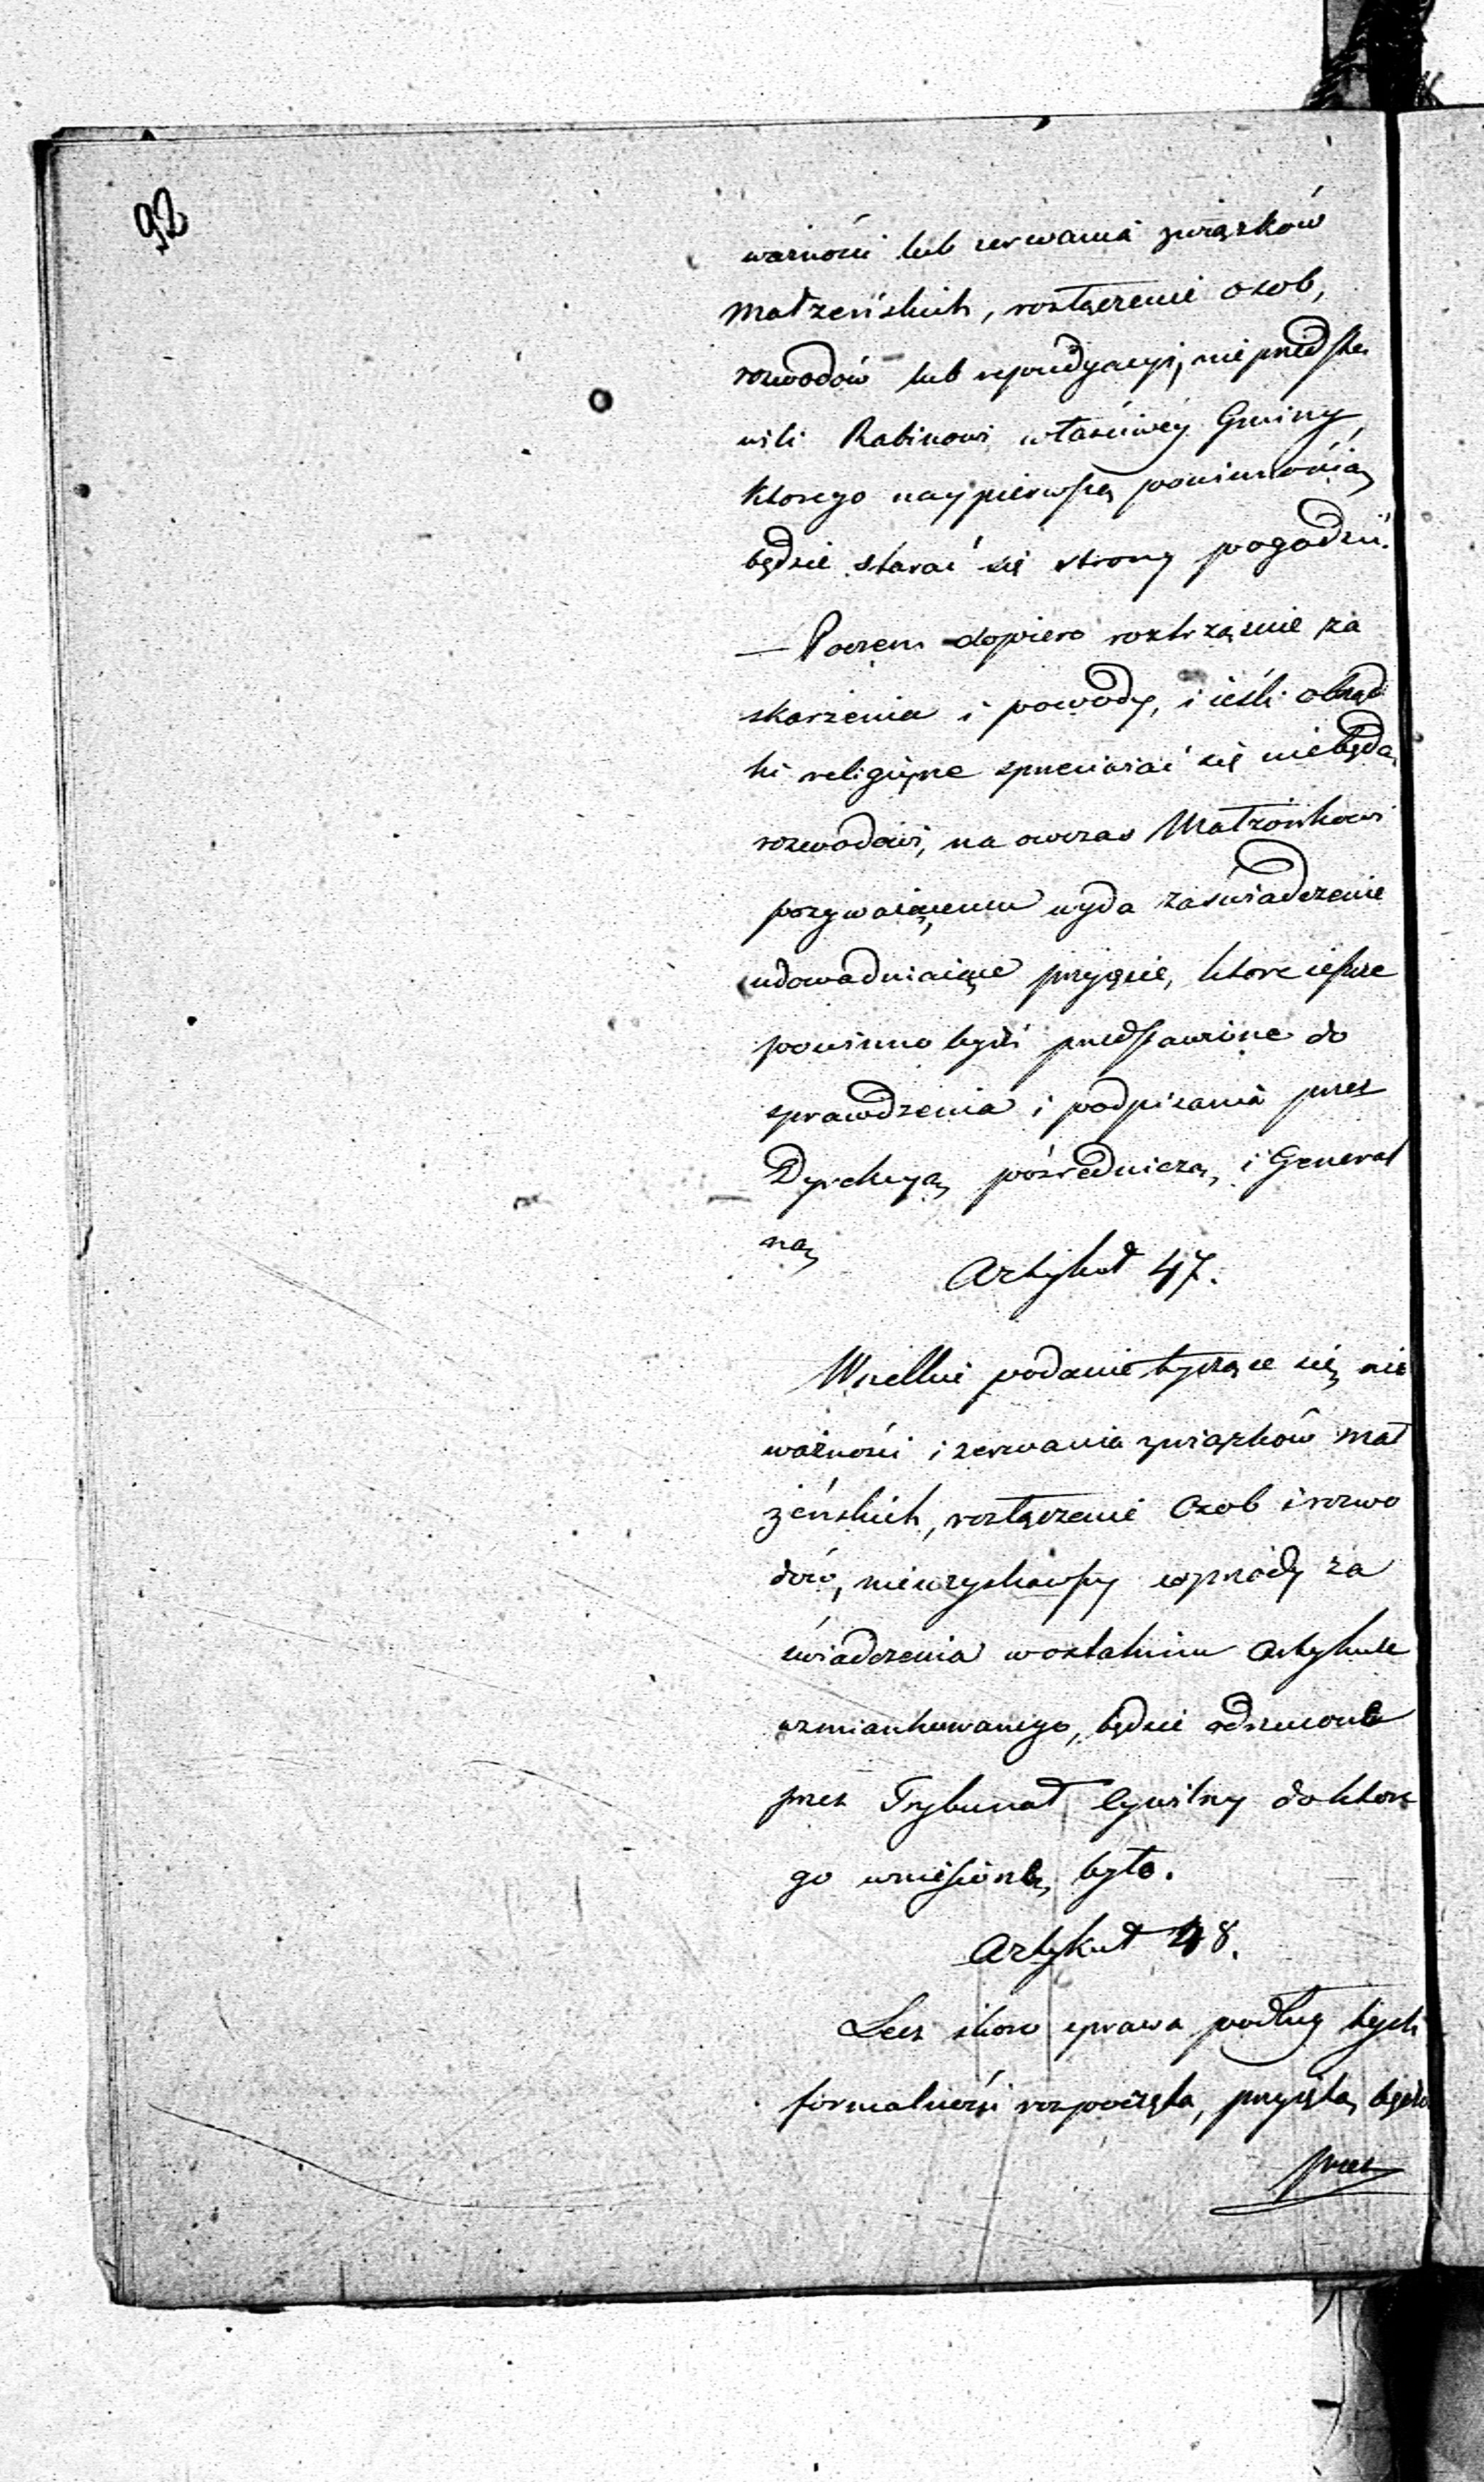 92
ważności lub zerwania związków
Małżeńskich, rozłączenie osob,
rozwodów lub repudyacyi, nie przedsta
wili Rabinowi właściwéy Gminy,
którego naypierwszą powinnością
będzie starać się strony pogodzić.
— Poczem dopiero roztrząśnie za
skarżenia i powody, i ieśli obrząd
ki religiyne sprzeciwiać się niebędą
rozwodowi, na owczas Małżonkowi
pozywaiącemu wyda zaświadczenie
udowadniaiące przyięcie, ktore ieszcze
powinno bydź przedstawione do
sprawdzenia i podpisania przez
Dyrekcyą pośredniczą, i General
ną
Artykuł 47.
Wszelkie podanie tyczące się nie
ważności i zerwania związków mał
żeńskich, rozłączenie Osob i rozwo
dów, nieuzyskawszy wprzódy za
świadczenia w ostatnim Artykule
wzmiankowanego, będzie odrzucone
przez Trybunał Cywilny do które
go wniesione było.
Artykuł 48.
Lecz skoro sprawa podług tych
formalności rozpoczęta, przyiętą będzie
przez